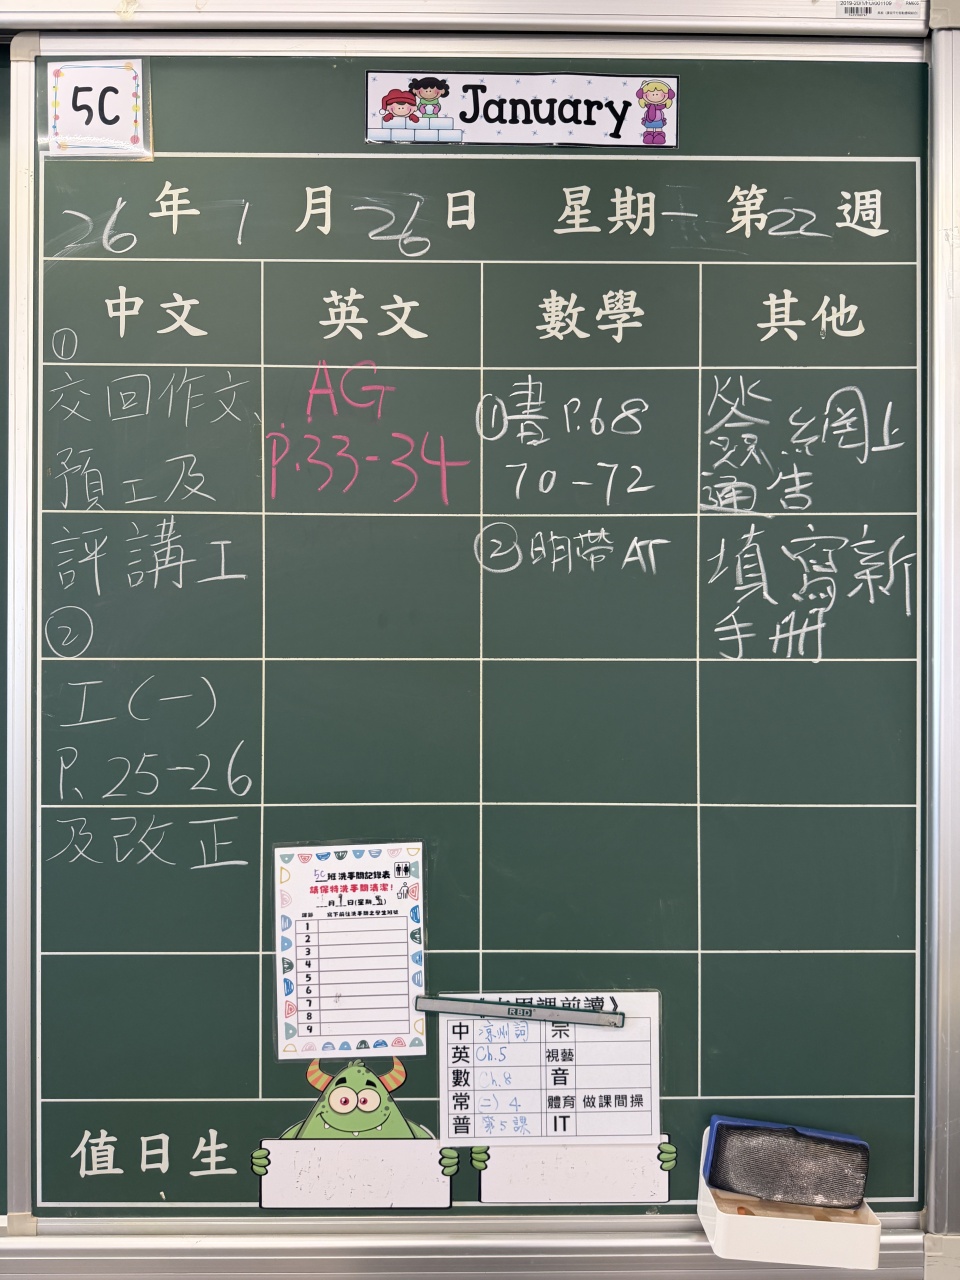 2019-20/1/FUR001109
5C
January
26年1月26日 星期一 第22週
中文
英文
數學
其他
①
交回作文、
預工及
評講工
②
工(一)
P.25-26
及改正
AG
P.33-34
①書P.68
70-72
②明帶AT
簽網上
通告
填寫新
手冊
5C班洗手間記錄表
請保持洗手間清潔!
月 日(星期五)
課節 寫下前往洗手間之學生班號
1
2
3
4
5
6
7
8
9
課前讀》
RBD
中 涼州詞 宗
英 Ch.5 視藝
數 Ch.8 音
常 (二) 4 體育 做課間操
普 第5課 IT
值日生